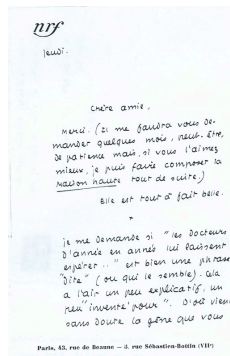 nrf
jeudi.
Chère amie,
Merci. (Il me faudra vous de-
mander quelques mois, peut-être,
de patience mais, si vous l'aimez
mieux, je puis faire composer la
Maison haute tout de suite.)
Elle est tout à fait belle.
*
je me demande si "les Docteurs
d'année en année lui laissent
espérer.." est bien une phrase
"dite" (ou qui le semble). Cela
a l'air un peu explicatif, un
peu "inventé pour". D'où vient
sans doute la gêne que vous
Paris, 43, rue de Beaune — 5, rue Sébastien-Bottin (VIIe)